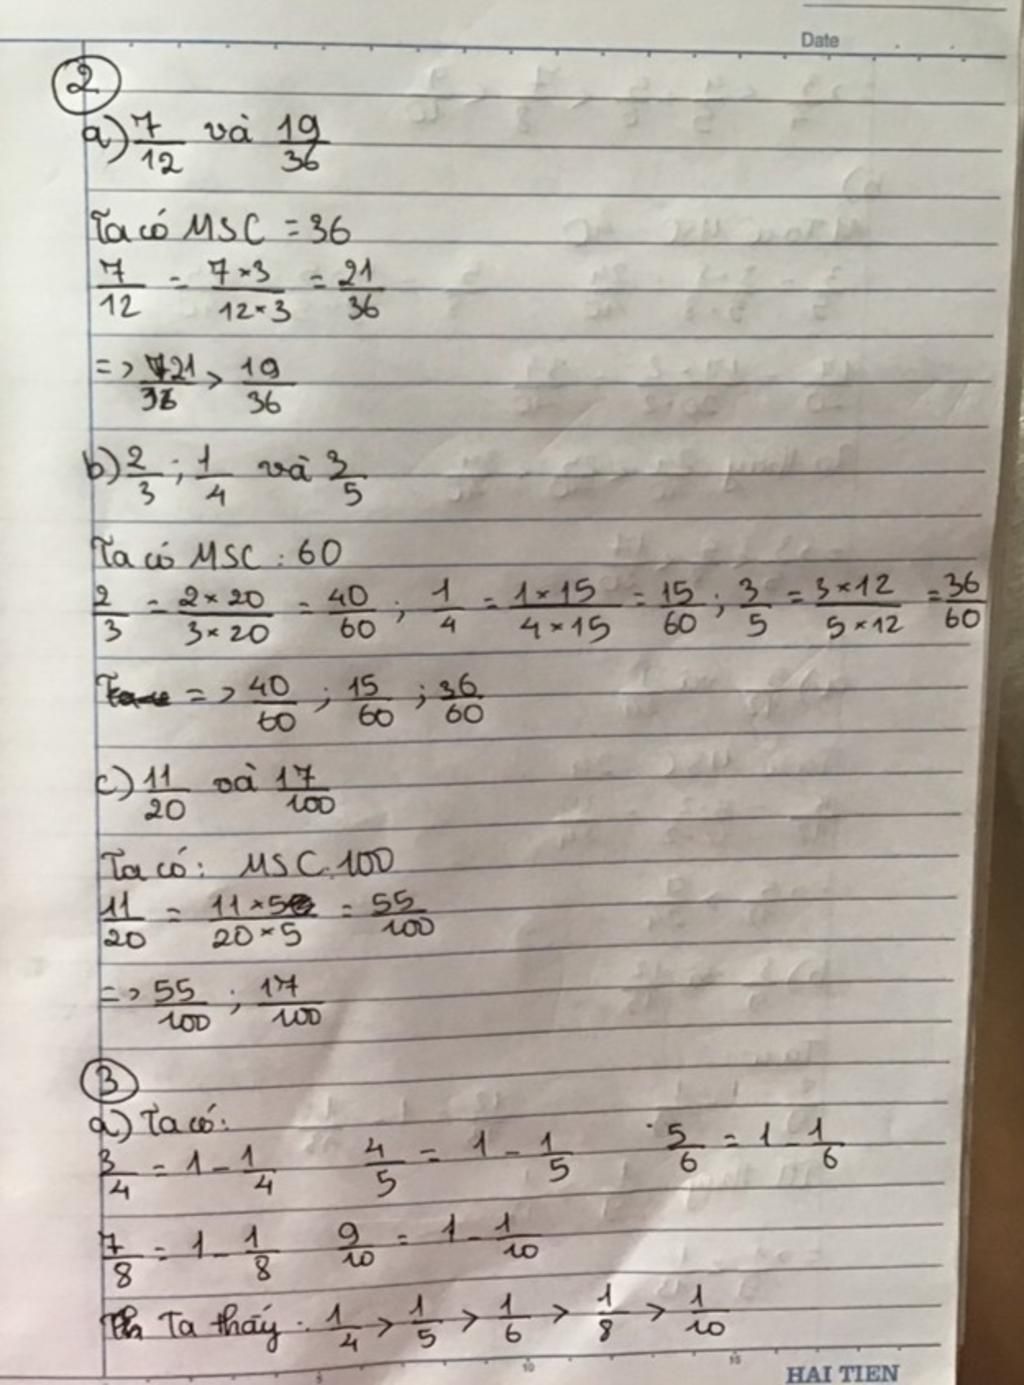 Date
2
a) 7/12 và 19/36
Ta có MSC = 36
7/12 = 7×3/12×3 = 21/36
=> 21/36 > 19/36
b) 2/3 ; 1/4 và 3/5
Ta có MSC : 60
2/3 = 2×20/3×20 = 40/60 ; 1/4 = 1×15/4×15 = 15/60 ; 3/5 = 3×12/5×12 = 36/60
=> 40/60 ; 15/60 ; 36/60
c) 11/20 và 17/100
Ta có : MSC.100
11/20 = 11×5/20×5 = 55/100
=> 55/100 ; 17/100
3
a) Ta có :
3/4 = 1 - 1/4 4/5 = 1 - 1/5 5/6 = 1 - 1/6
7/8 = 1 - 1/8 9/10 = 1 - 1/10
Ta thấy : 1/4 > 1/5 > 1/6 > 1/8 > 1/10
5 10 15
HAI TIEN